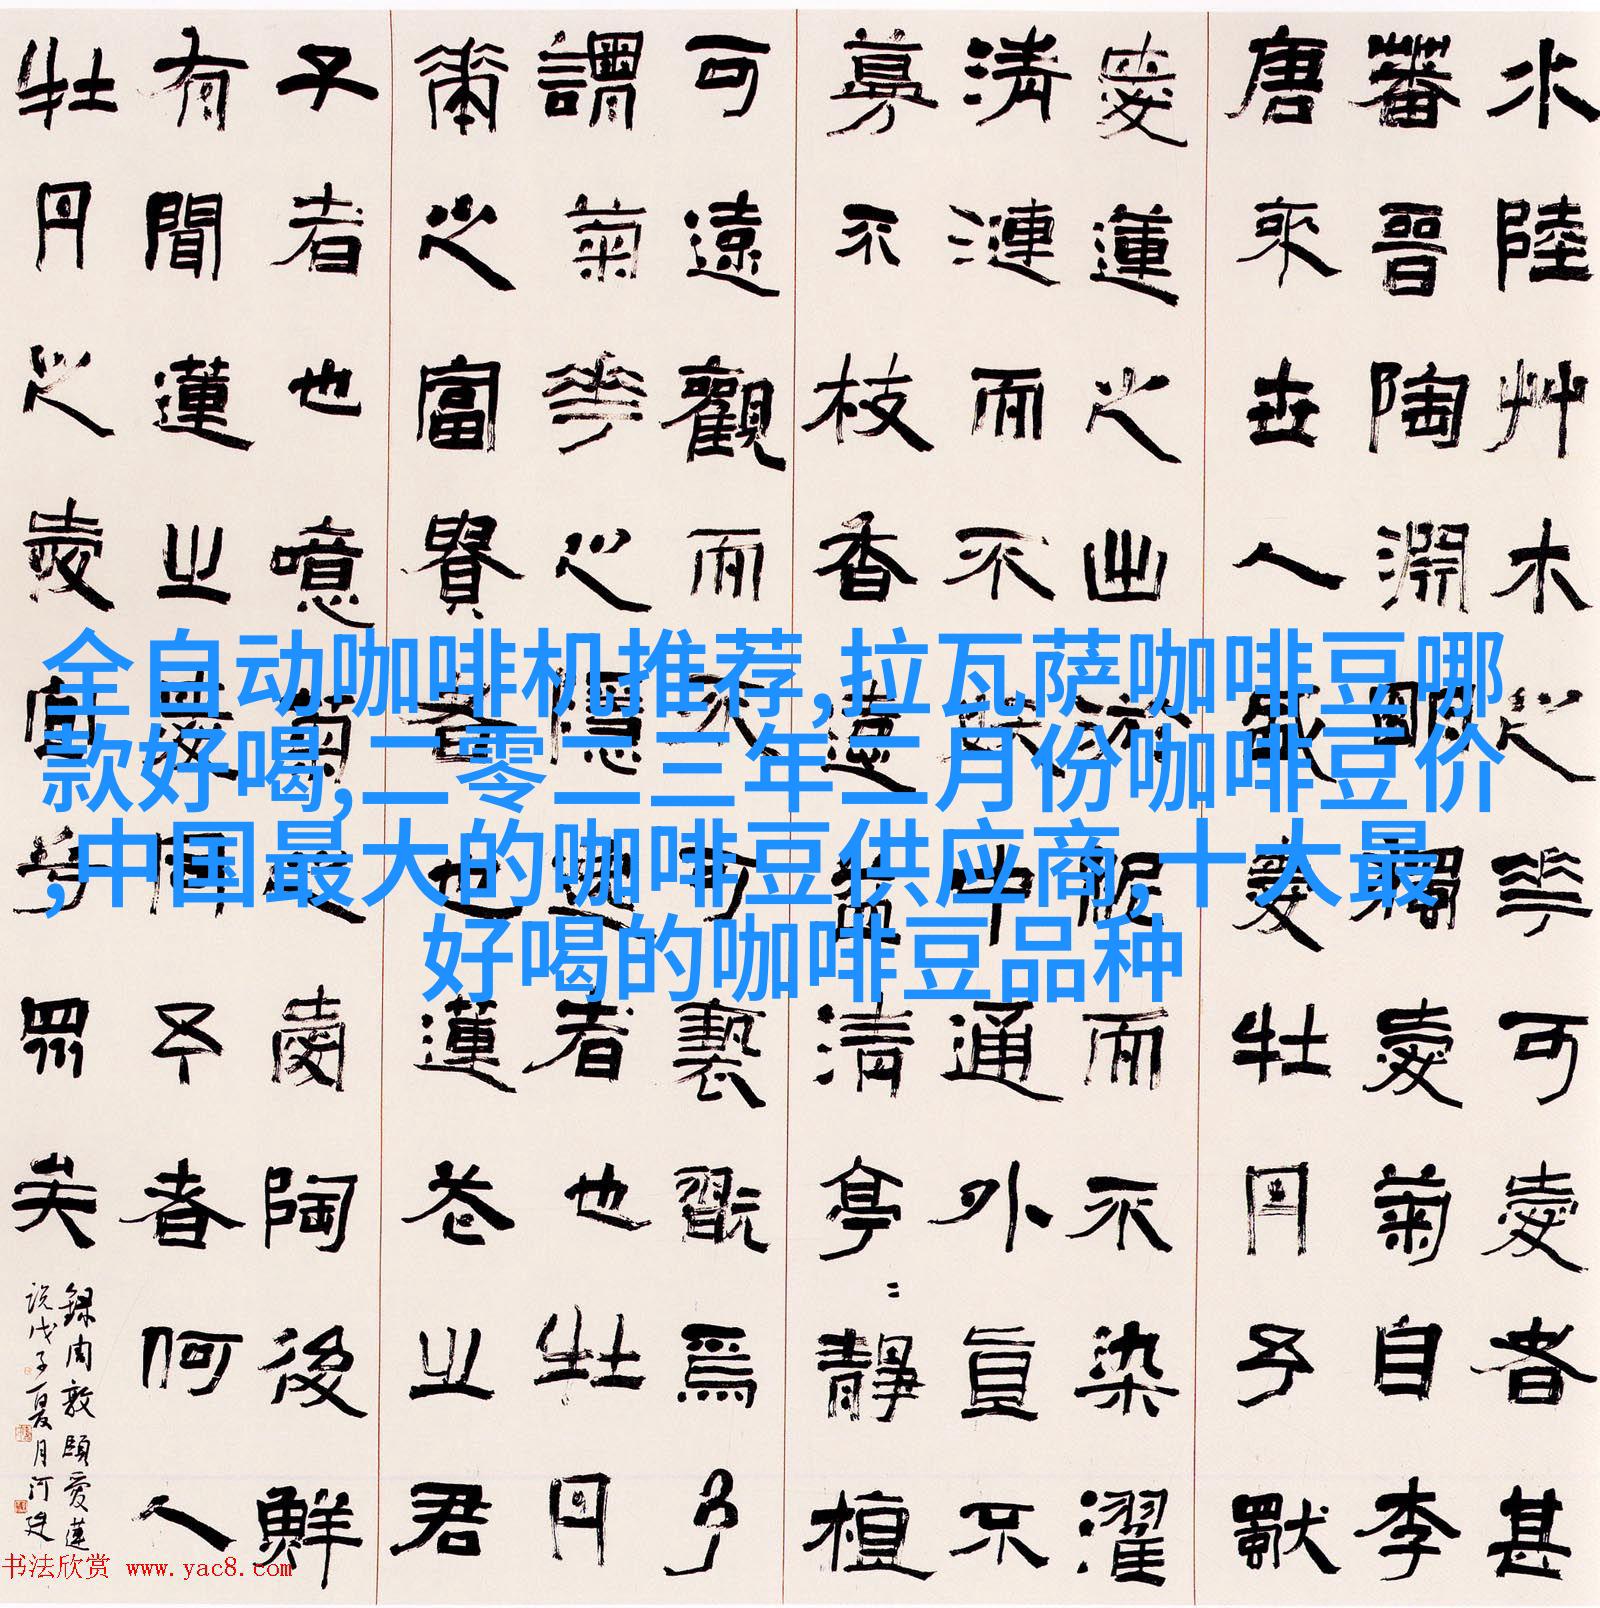 水陸艸木之華可愛者甚
蕃晉陶淵明獨愛菊自李
唐來世人盛愛牡丹予獨
愛蓮之出淤泥而不染濯
清漣而不妖中通外直不
蔓不枝香遠益清亭=靜植
可遠觀而不可褻翫焉予
謂菊華之隱逸者也牡丹
華之富貴者也蓮華之君
子者也噫菊之愛陶後鮮
有聞蓮之愛同予者何人
牡丹之愛宜乎眾矣
錄周敦頤愛蓮
說戊子夏月河
全自动咖啡机推荐,拉瓦萨咖啡豆哪
款好喝,二零二三年二月份咖啡豆价
,中国最大的咖啡豆供应商,十大最
好喝的咖啡豆品种
书法欣赏 www.yac8.com